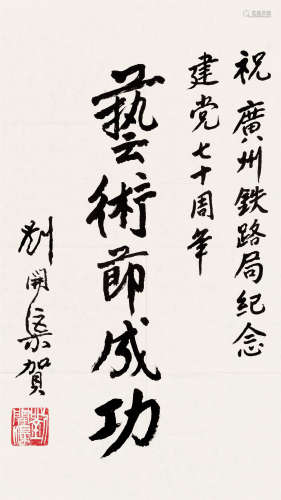 祝廣州鉄路局纪念
建党七十周年
藝術節成功
劉開渠賀